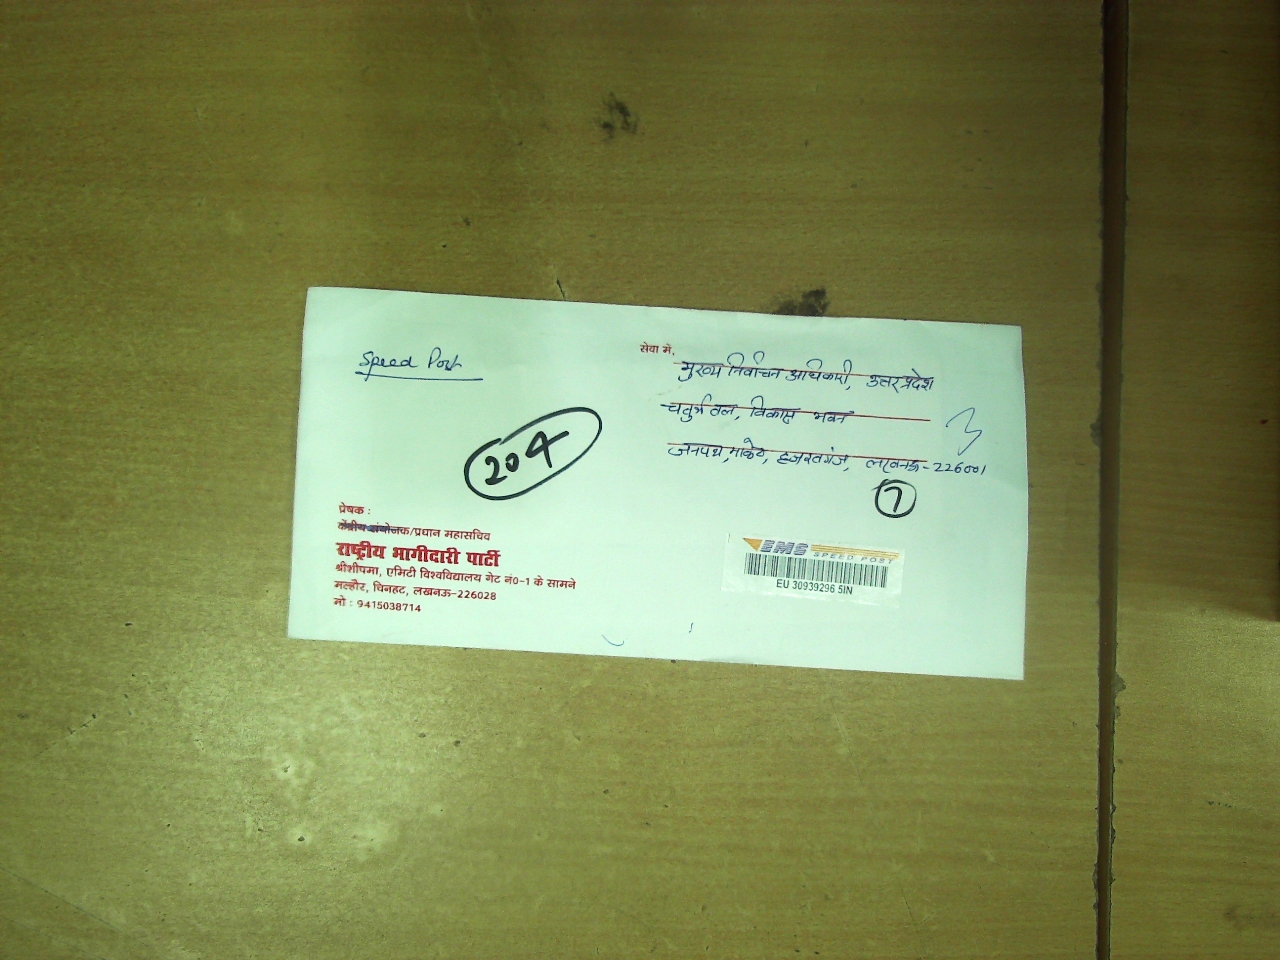 Speed Post
204
सेवा में,
मुख्य निर्वाचन अधिकारी, उत्तर प्रदेश
चतुर्थ तल, विकास भवन
जनपथ, मार्केट, हजरतगंज, लखनऊ-226001
7
प्रेषक :
केंद्रीय संयोजक/प्रधान महासचिव
राष्ट्रीय भागीदारी पार्टी
श्रीशीपमा, एमिटी विश्वविद्यालय गेट नं0-1 के सामने
मल्हौर, चिनहट, लखनऊ-226028
मो : 9415038714
EMS SPEED POST
EU 30939296 5IN